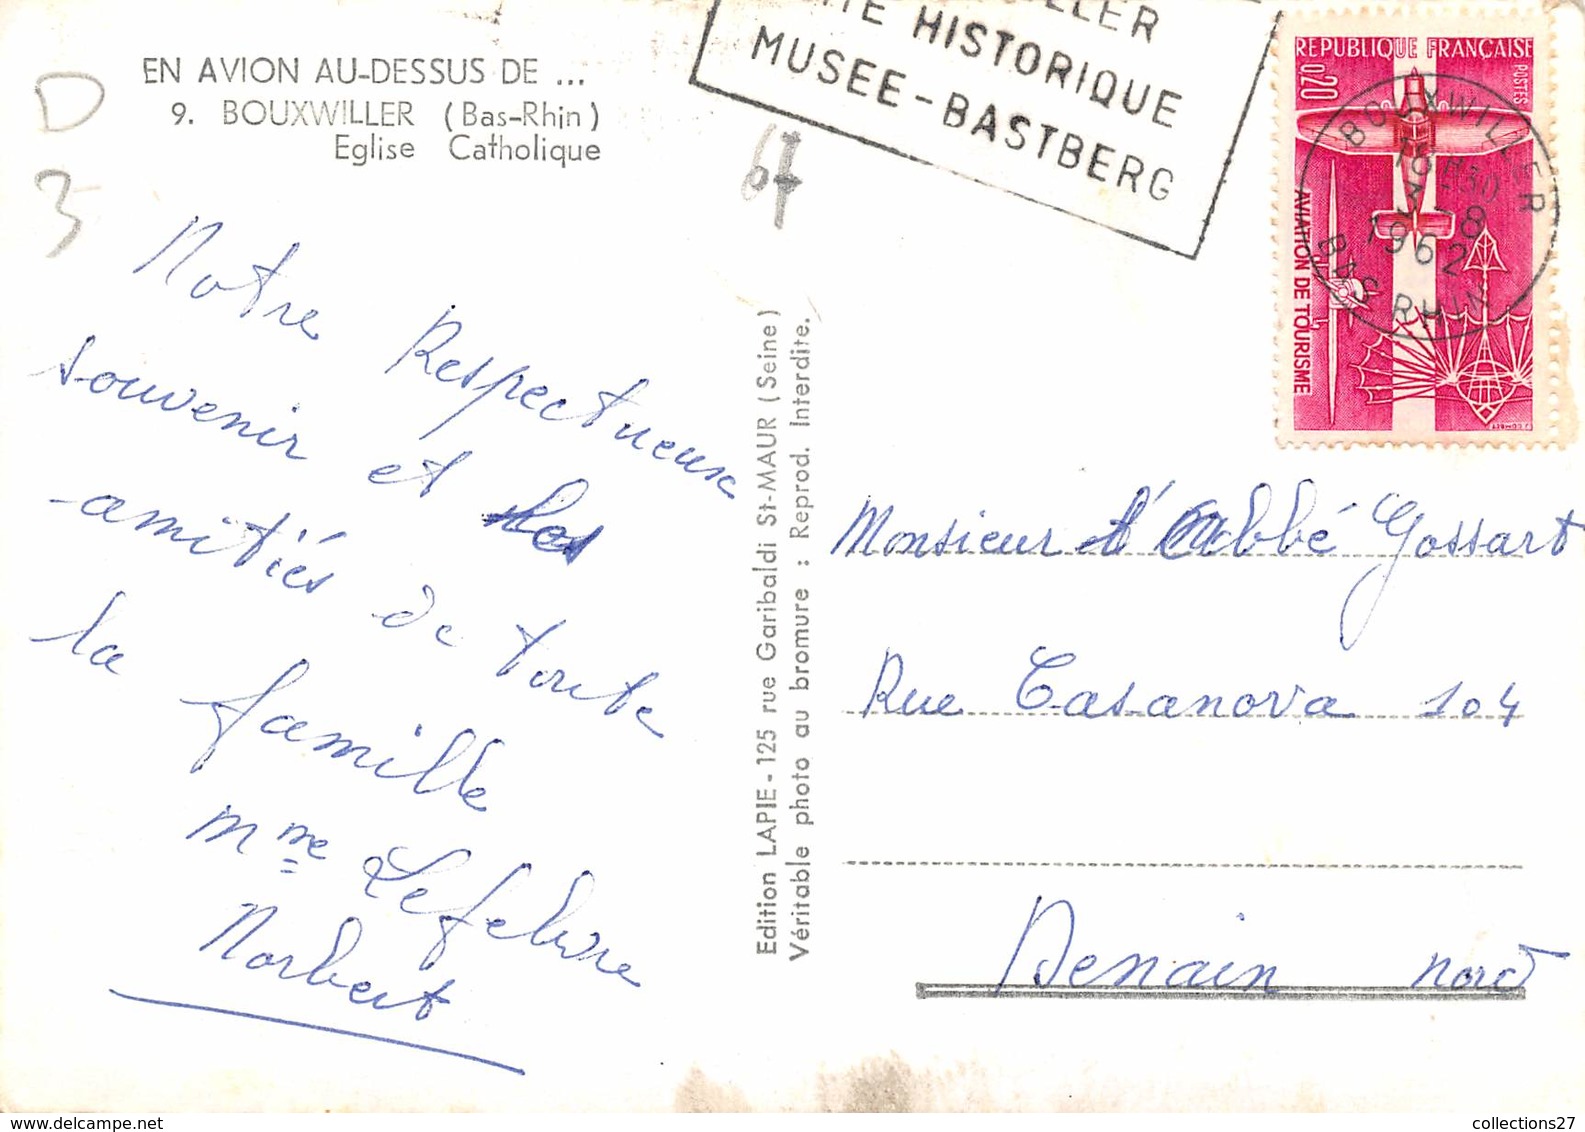 EN AVION AU-DESSUS DE ...
9. BOUXWILLER (Bas-Rhin)
Eglise Catholique
D
3
67
HISTORIQUE
MUSEE-BASTBERG
REPUBLIQUE FRANÇAISE
0,20
POSTES
AVIATION DE TOURISME
BOUXWILLER
18H30
3-8
1962
BAS RHIN
Notre Respectueux
souvenir et les
amitiés de toute
la famille
Mme Lefebvre
Norbert
Edition LAPIE - 125 rue Garibaldi St-MAUR (Seine)
Véritable photo au bromure : Reprod. Interdite.
Monsieur l'Abbé Gossart
Rue Casanova 104
Denain Nord
collections27